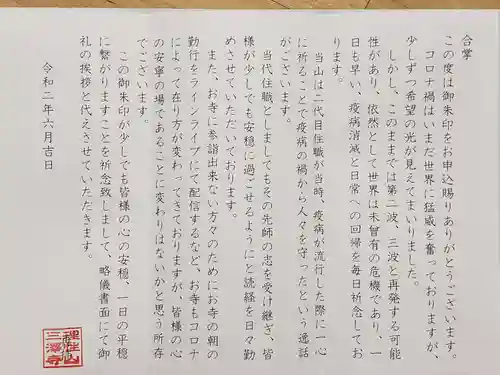 合掌
この度は御朱印をお申込賜りありがとうございます。
コロナ禍はいまだ世界に猛威を奮っておりますが、
少しずつ希望の光が見えてまいりました。
しかし、このままでは第二波、三波と再発する可能
性があり、依然として世界は未曽有の危機であり、一
日も早い、疫病消滅と日常への回帰を毎日祈念してお
ります。
当山は二代目住職が当時、疫病が流行した際に一心
に祈ることで疫病の禍から人々を守ったという逸話
がございます。
当代住職としましてもその先師の志を受け継ぎ、皆
様が少しでも安穏に過ごせるようにと読経を日々勤
めさせていただいております。
また、お寺に参詣出来ない方々のためにお寺の朝の
勤行をラインライブにて配信するなど、お寺もコロナ
によって在り方が変わってきておりますが、皆様の心
の安寧の場であることに変わりはないかと思う所存
でございます。
この御朱印が少しでも皆様の心の安穏、一日の平穏
に繋がりますことを祈念致しまして、略儀書面にて御
礼の挨拶と代えさせていただきます。
令和二年六月吉日